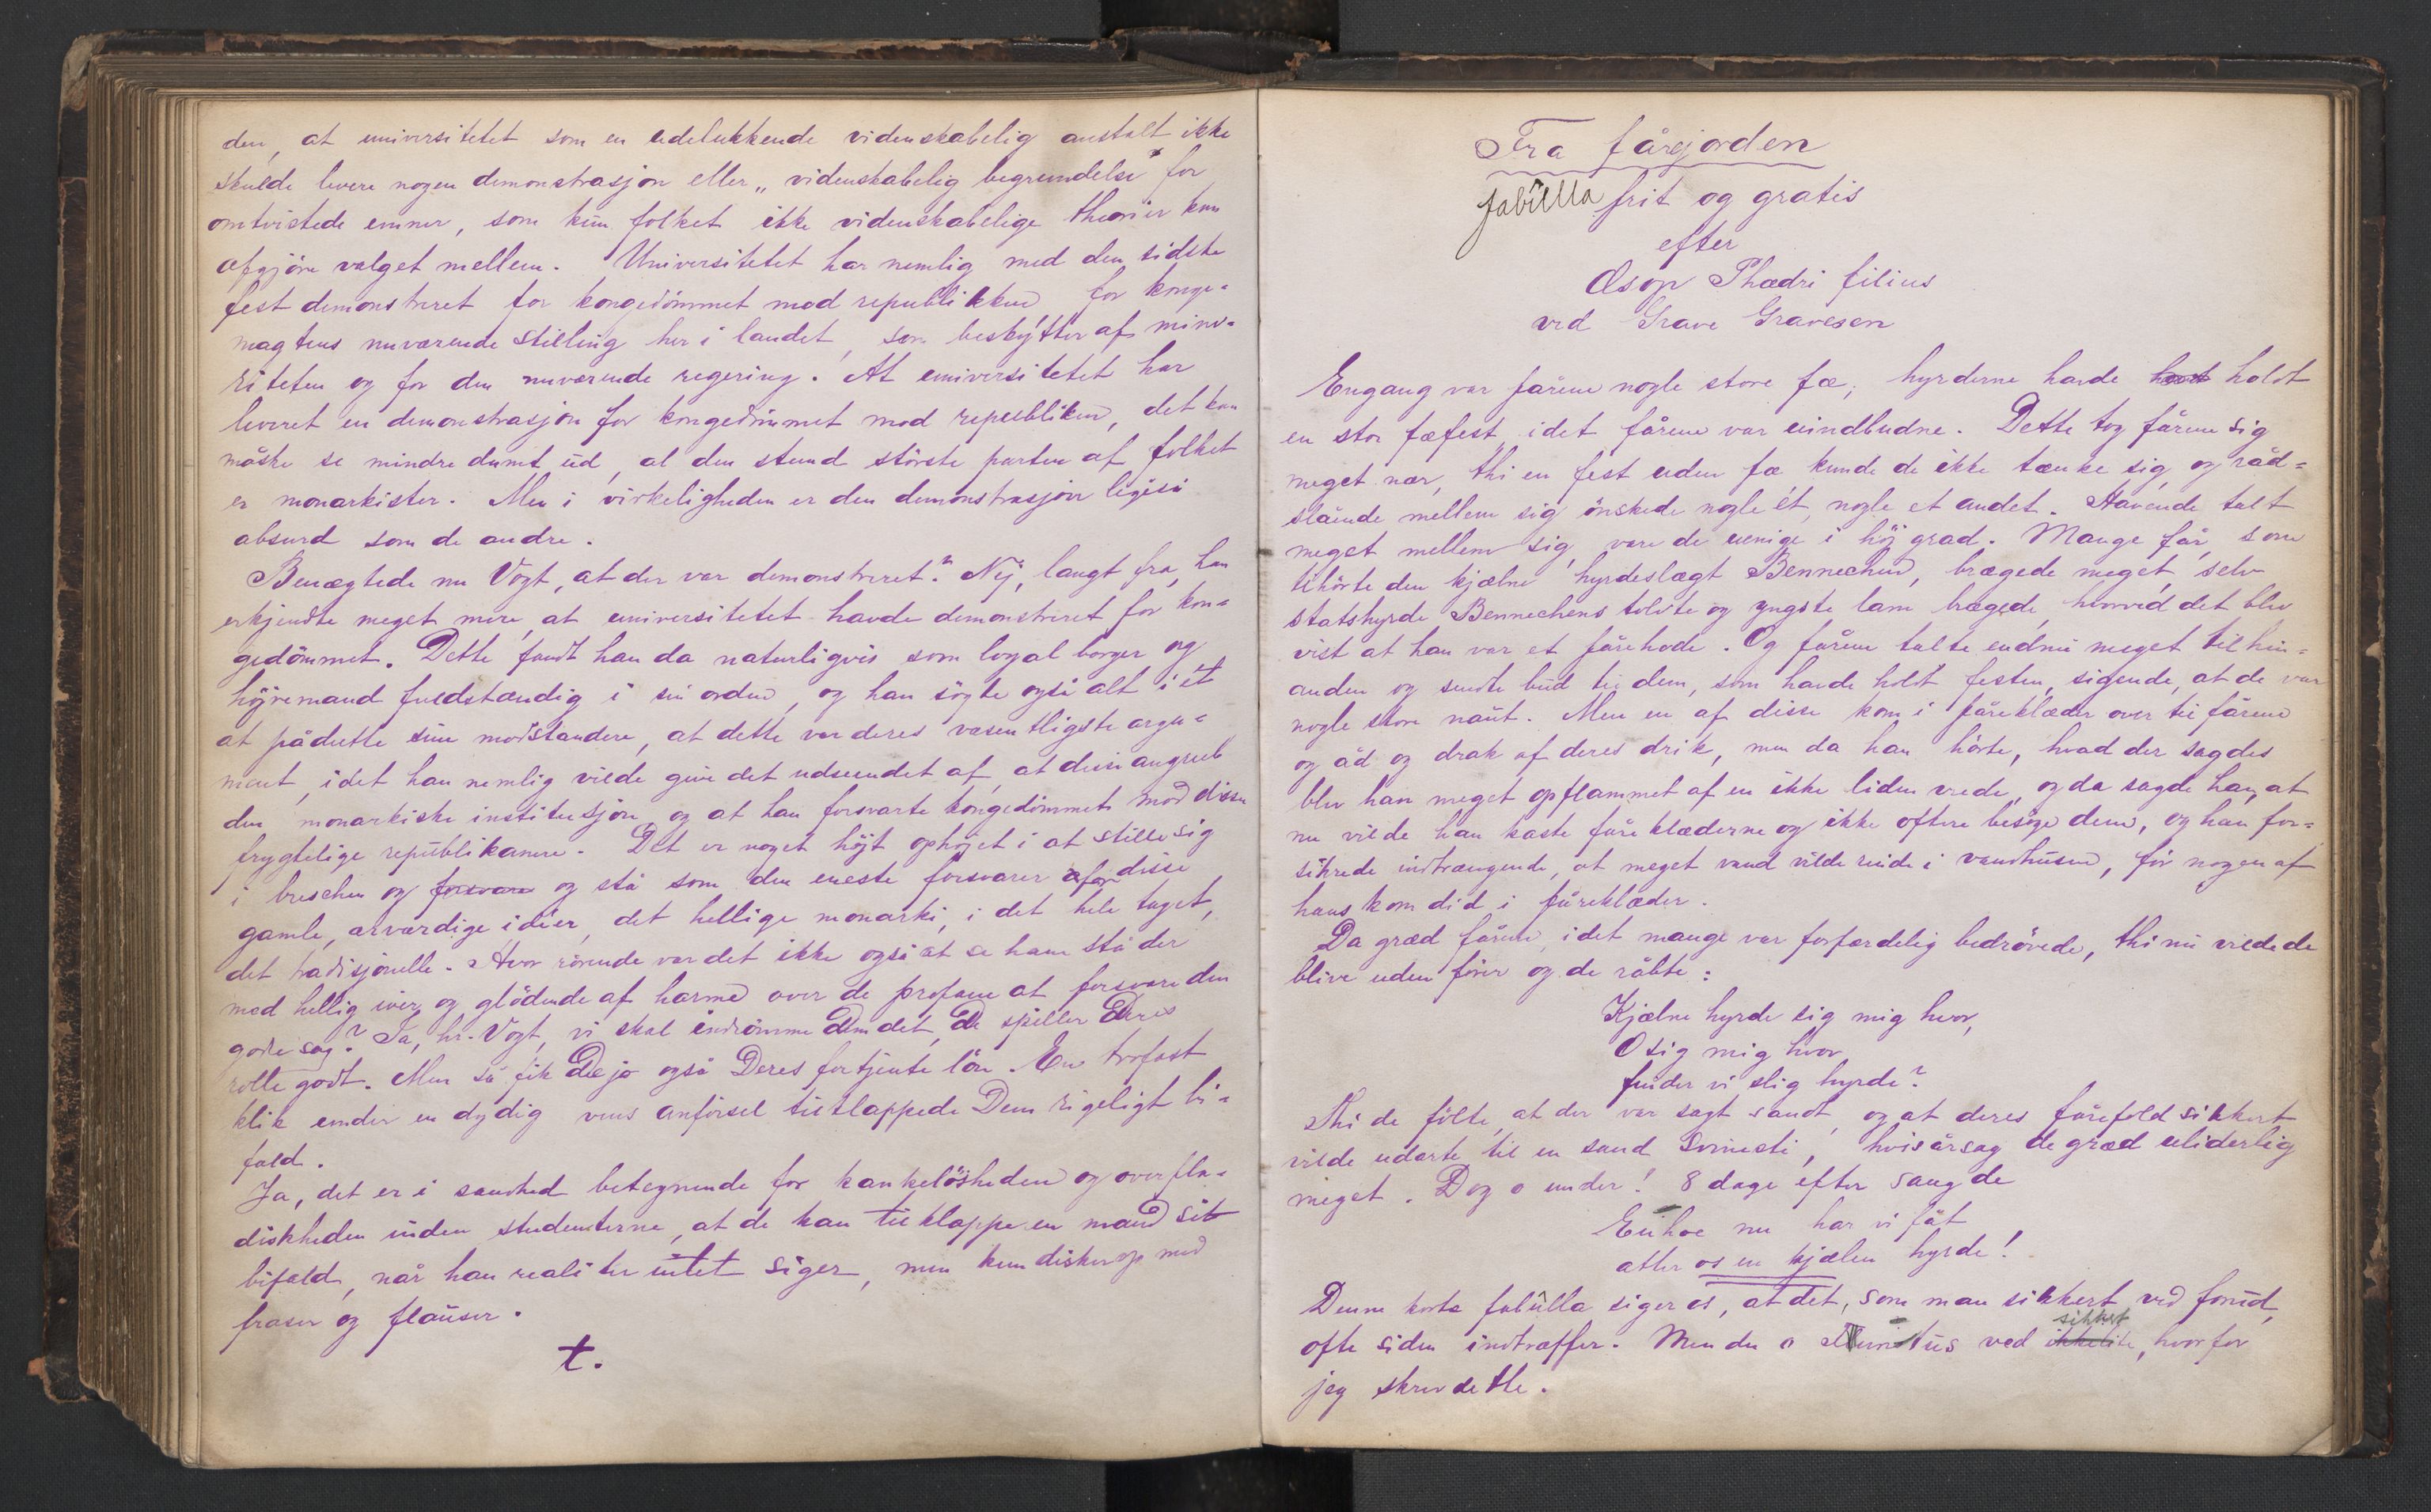 den, at universitetet som en udelukkende videnskabelig anstalt ikke
skulde levere nogen demonstrasjon eller „videnskabelig begrundelse“ for
omtvistede emner, som kun folket ikke videnskabelige theorier kan
afgjöre valget mellem. Universitetet har nemlig med den sidste
fest demonstreret for kongedömmet mod republikken for konge-
magtens nuværende stilling her i landet, som beskytter af mino-
riteten og for den nuværende regjering. At universitetet har
leveret en demonstrasjon for kongedömmet mod republiken, det kan
måske se mindre dumt ud, al den stund störste parten af folket
er monarkister. Men i virkeligheden er den demonstrasjon ligeså
absurd som de andre.
Benægtede nu Vogt, at der var demonstreret? Nej, langt fra, han
erkjendte meget mere, at universitetet havde demonstreret for kon-
gedömmet. Dette fandt han da naturligvis som loyal borger og
höjremand fuldstændig i sin orden, og han sögte også alt i ét
at pådutte sine modstandere, at dette var deres væsentligste argu-
ment, idet han nemlig vilde give det udseendet af, at disse angreb
den monarkiske institusjon, og at han forsvarte kongedömmet mod disse
frygtelige republikanere. Det er noget höjt ophöjet i at stille sig
i breschen og forsvare og stå som den eneste forsvarer af disse
gamle, ærværdige idéer, det hellige monarki, i det hele taget,
det tradisjonelle. Hvor rörende var det ikke også at se ham stå der
med hellig iver og glödende af harme over de profane at forsvare den
gode sag? Ja, hr. Vogt, vi skal indrömme Dem det, De spiller Deres
rolle godt. Men så fik De jo også Deres fortjente lön. En trofast
klik under en dydig vens anförsel tilklappede Dem rigeligt bi-
fald.
Ja, det er i sandhed betegnende for tankelösheden og overfla-
diskheden inden studenterne, at de kan tilklappe en mand sit
bifald, når han realiter intet siger, men kun disker op med
fraser og flauser.
t.
Fra fårejorden
fabulla frit og gratis
efter
Æsop Phædri filius
ved Grave Gravesen
Engang var fårene nogle store fæ; hyrderne havde havt holdt
en stor fæfest, idet fårene var uindbudne. Dette tog fårene sig
meget nær, thi en fest uden fæ kunde de ikke tænke sig, og råd-
slående mellem sig önskede nogle ét, nogle et andet. Havende talt
meget mellem sig, vare de uenige i höj grad. Mange får, som
tilhörte den kjælne hyrdeslægt Bennechen, brægede meget, selv
statshyrde Bennechens tolvte og yngste lam brægede, hvorved det blev
vist at han var et fårehode. Og fårene talte endnu meget til hin-
anden og sendte bud til dem, som havde holdt festen, sigende, at de var
nogle store naut. Men en af disse kom i fåreklæder over til fårene
og åd og drak af deres drik, men da han hörte, hvad der sagdes
blev han meget opflammet af en ikke liden vrede, og da sagde han, at
nu vilde han kaste fåreklæderne og ikke oftere besöge dem, og han for-
sikrede indtrængende, at meget vand vilde rinde i vandhusene, för nogen af
hans kom did i fåreklæder.
Da græd fårene, idet mange var forfærdelig bedrövede, thi nu vilde de
blive uden förer og de råbte:
Kjælne hyrde sig mig hvor,
O sig mig hvor
finder vi slig hyrde?
Thi de fölte, at der var sagt sandt, og at deres fårefold sikkert
vilde udarte til en sand svinesti, hvisårsag de græd uliderlig
meget. Dog o under! 8 dage efter sang de
Euhoe nu har vi fåt
atter os en kjælen hyrde!
Denne korte fabulla siger os, at det, som man sikkert ved forud,
ofte siden indtræffer. Men du o ved ikkelite sikkert, hvorfor
jeg skrev dette.